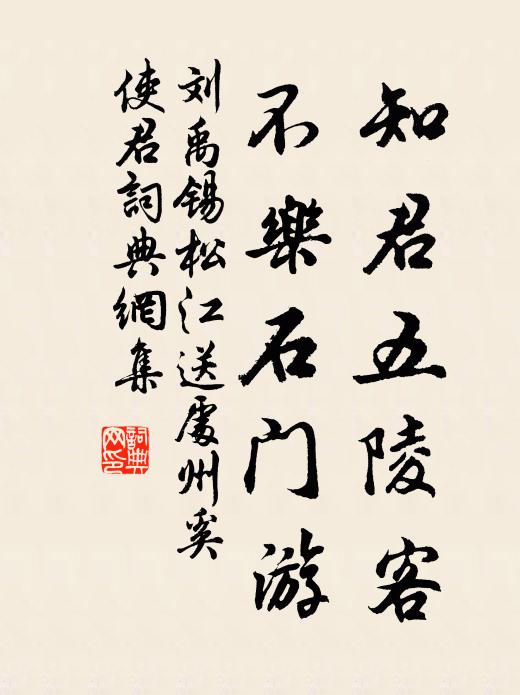 知君五陵客
不樂石门游
刘禹锡松江送處州奚
使君詞典網集
詞典
网印